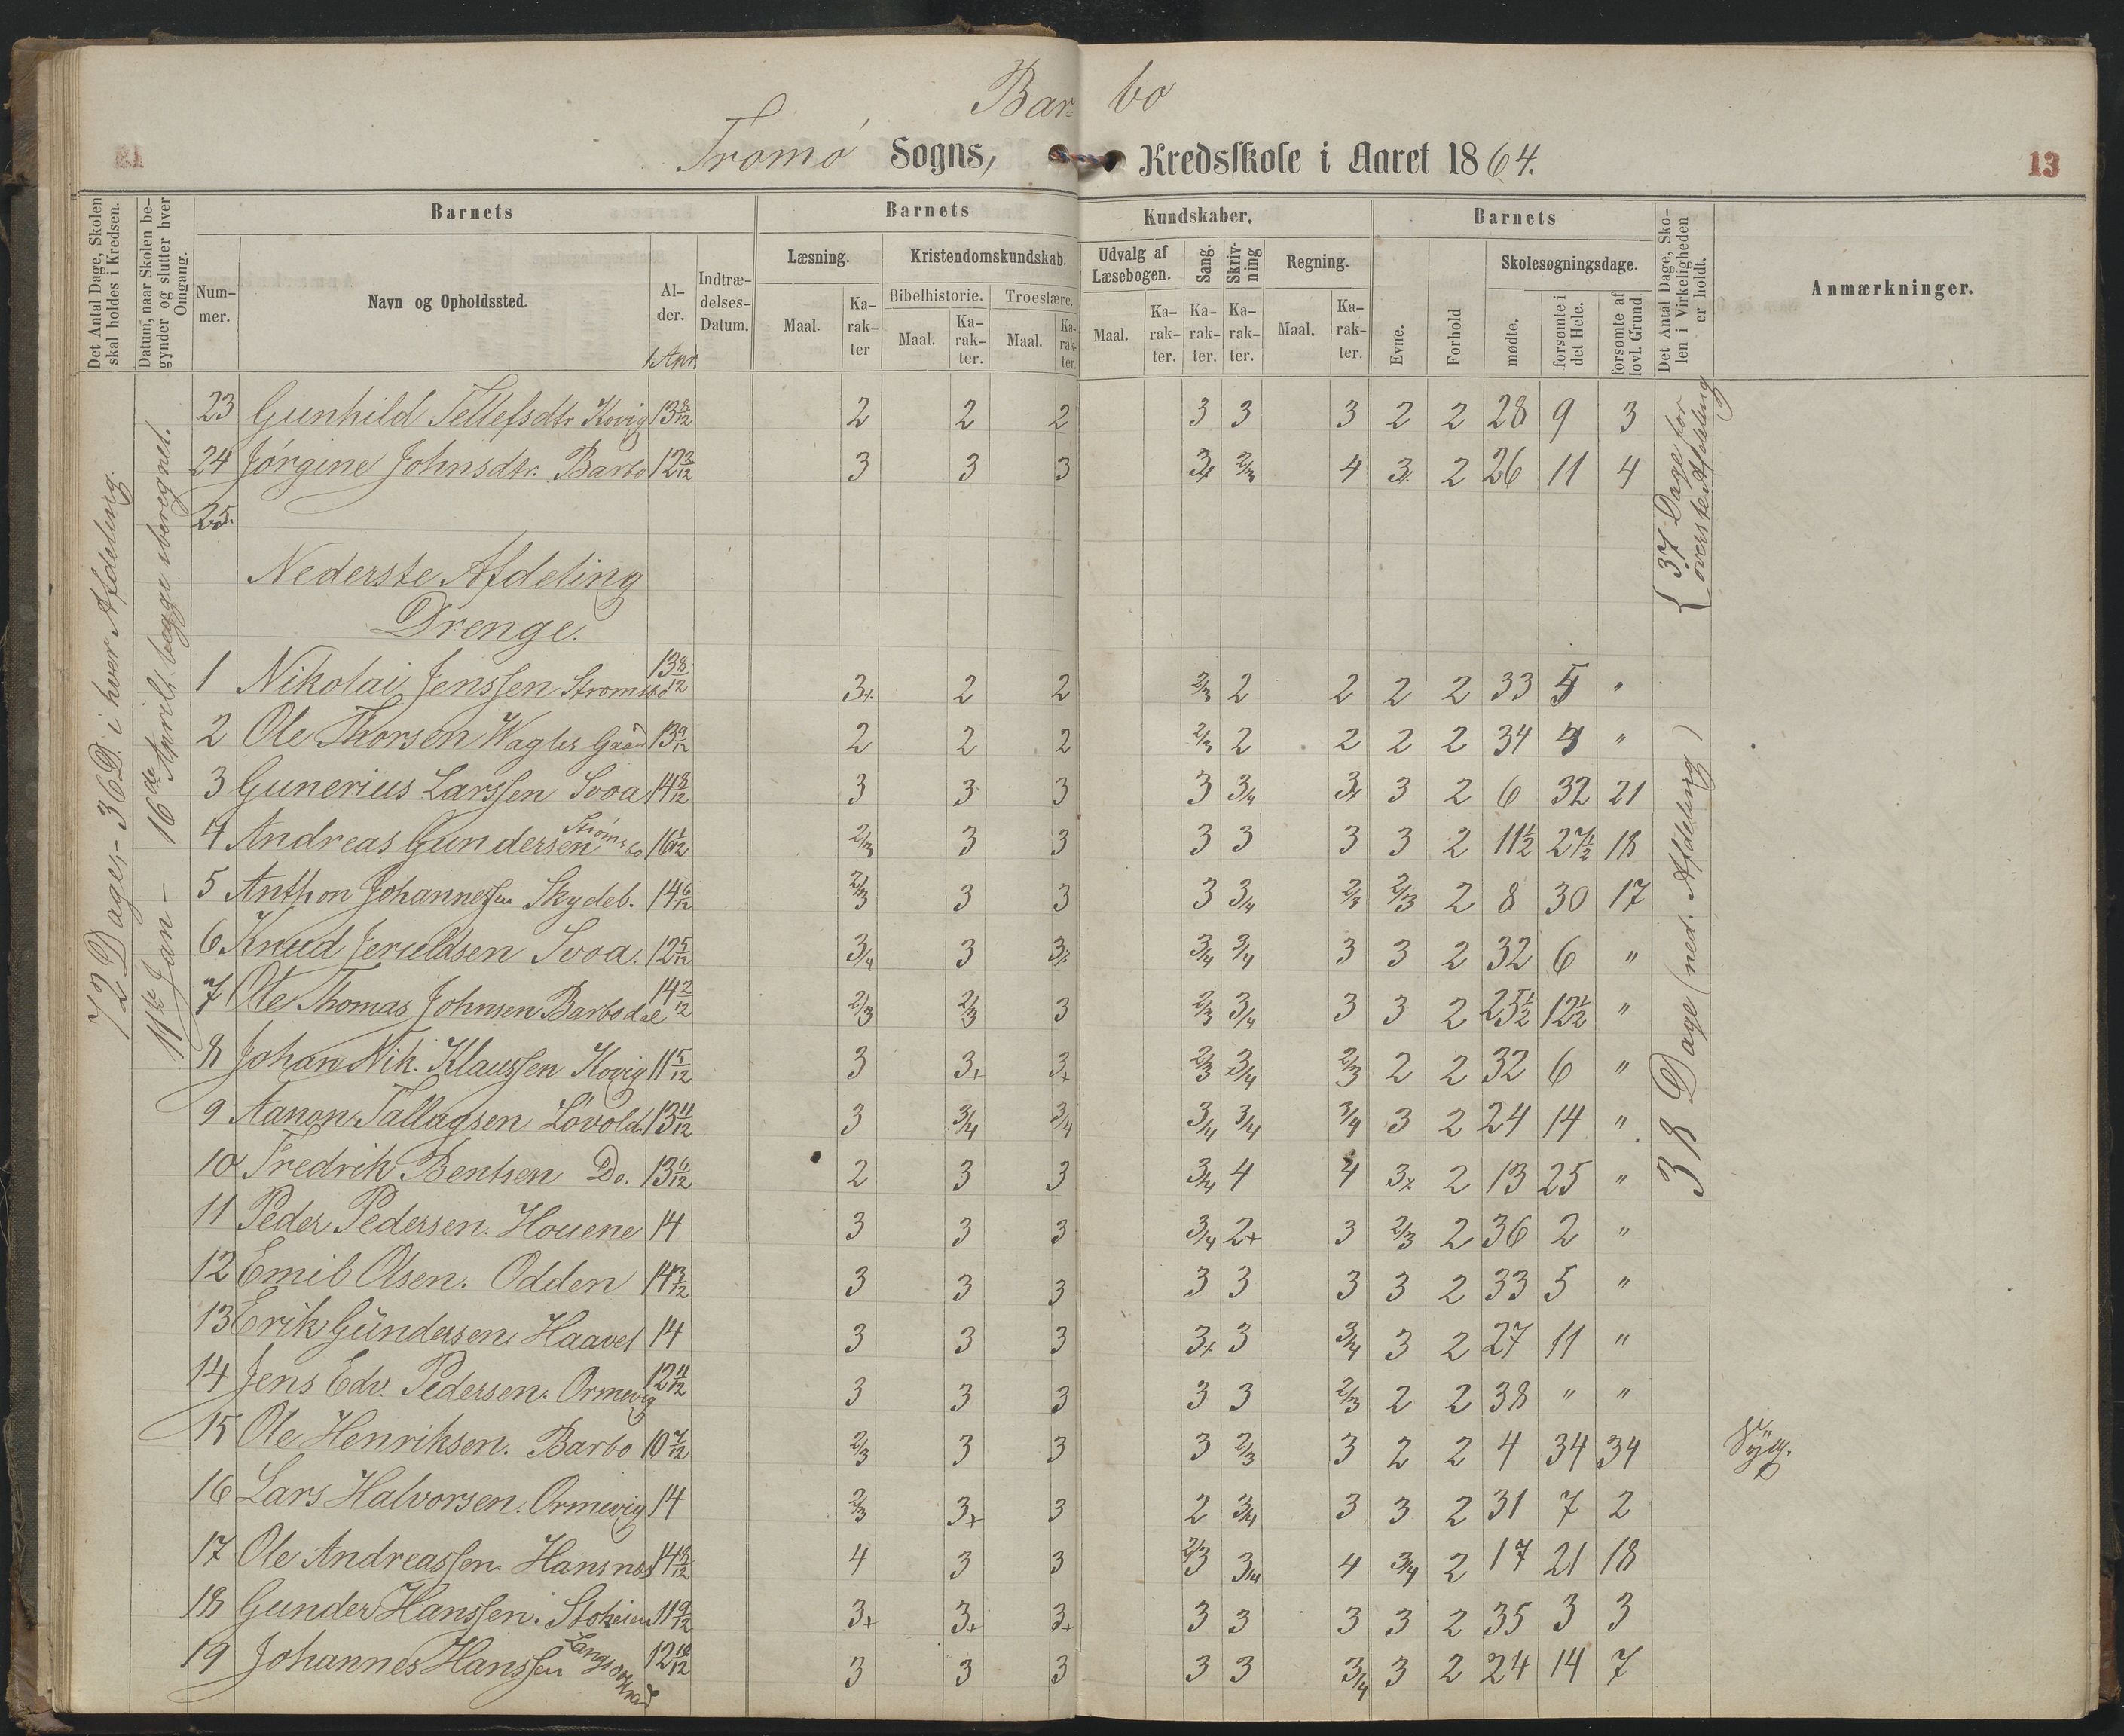 Bar- bo
21 Tromø Sogns, Kredsskole i Aaret 1864. 13
Det Antal Dage, Skolen skal holdes i Kredsen.
Datum, naar Skolen begynder og slutter hver Omgang.
Barnets Barnets Kundskaber. Barnets
Det Antal Dage, Skolen i Virkeligheden er holdt.
Anmærkninger.
Nummer. Navn og Opholdssted. Alder. Indtrædelses-Datum. Læsning. Kristendomskundskab. Udvalg af Læsebogen. Sang. Skrivning Regning. Evne. Forhold Skolesøgningsdage.
Bibelhistorie. Troeslære. mødte. forsømte i det Hele. forsømte af lovl. Grund.
Maal. Karakter Maal. Karakter. Maal. Karakter. Maal. Karakter. Karakter. Karakter. Maal. Karakter.
1 Apr.
72 Dage - 36 D. i hver Afdeling.
11te Jan - 16de April begge iberegnet.
23 Gunhild Tellefsdtr Kovig 13 8/12 2 2 2 3 3 3 2 2 28 9 3
24 Jørgine Johnsdtr. Barbo 12 3/12 3 3 3 3+ 2/3 4 3+ 2 26 11 4
25.
37 Dage for øverste Afdeling
Nederste Afdeling
Drenge.
1 Nikolai Jenssen Strømsbo 13 8/12 3+ 2 2 2/3 2 2 2 2 33 5 "
2 Ole Thorsen Wagles Gaard 13 9/12 2 2 2 2/3 2 2 2 2 34 4 "
3 Gunerius Larssen Svoa 14 8/12 3 3 3 3 3/4 3+ 3 2 6 32 21
4 Andreas Gundersen Strømsbo 16 1/12 2/3 3 3 3 3 3 3 2 11 1/2 27 1/2 18
5 Anthon Johannessen Skydeb. 14 6/12 2/3 3 3 3 3/4 2/3 2/3 2 8 30 17
6 Knud Jeruldsen Svoa. 12 5/12 3/4 3 3+ 3/4 3/4 3 3 2 32 6 "
7 Ole Thomas Johnsen Barbodal 14 2/12 2/3 2/3 3 2/3 3/4 3 3 2 25 1/2 12 1/2 "
8 Johan Nik. Klaussen Kovig 11 5/12 3 3+ 3+ 2/3 3/4 2/3 2 2 32 6 "
9 Aanon Tallagsen Løvold. 13 11/12 3 3/4 3/4 3/4 3/4 3/4 3 2 24 14 "
10 Fredrik Bentsen Do. 13 6/12 2 3 3 3/4 4 4 3+ 2 13 25 "
11 Peder Pedersen. Houene 14 3 3 3 3/4 2+ 3 2/3 2 36 2 "
12 Emil Olsen. Odden 14 3/12 3 3 3 3 3 3 3 2 33 5 "
13 Erik Gundersen. Haavet 14 3 3 3 3+ 3 3/4 3 2 27 11 "
14 Jens Edv. Pedersen. Ormevig 12 11/12 3 3 3 3 3 2/3 2 2 38 " "
15 Ole Henriksen. Barbo 10 7/12 2/3 3 3 3 2/3 3 2 2 4 34 34 Syg.
16 Lars Halvorsen. Ormevig 14 2/3 3+ 3 2 3/4 3 3 2 31 7 2
17 Ole Andreassen. Hansnæs 14 8/12 4 3 3 2/3 3/4 4 3/4 2 17 21 18
18 Gunder Hanssen. 11 9/12 3+ 3+ 3+ 3 3 3 3 2 35 3 3
19 Johannes Hanssen 12 10/12 3 3 3 3 3 3/4 3 2 24 14 7
38 Dage (ned. Afdeling)